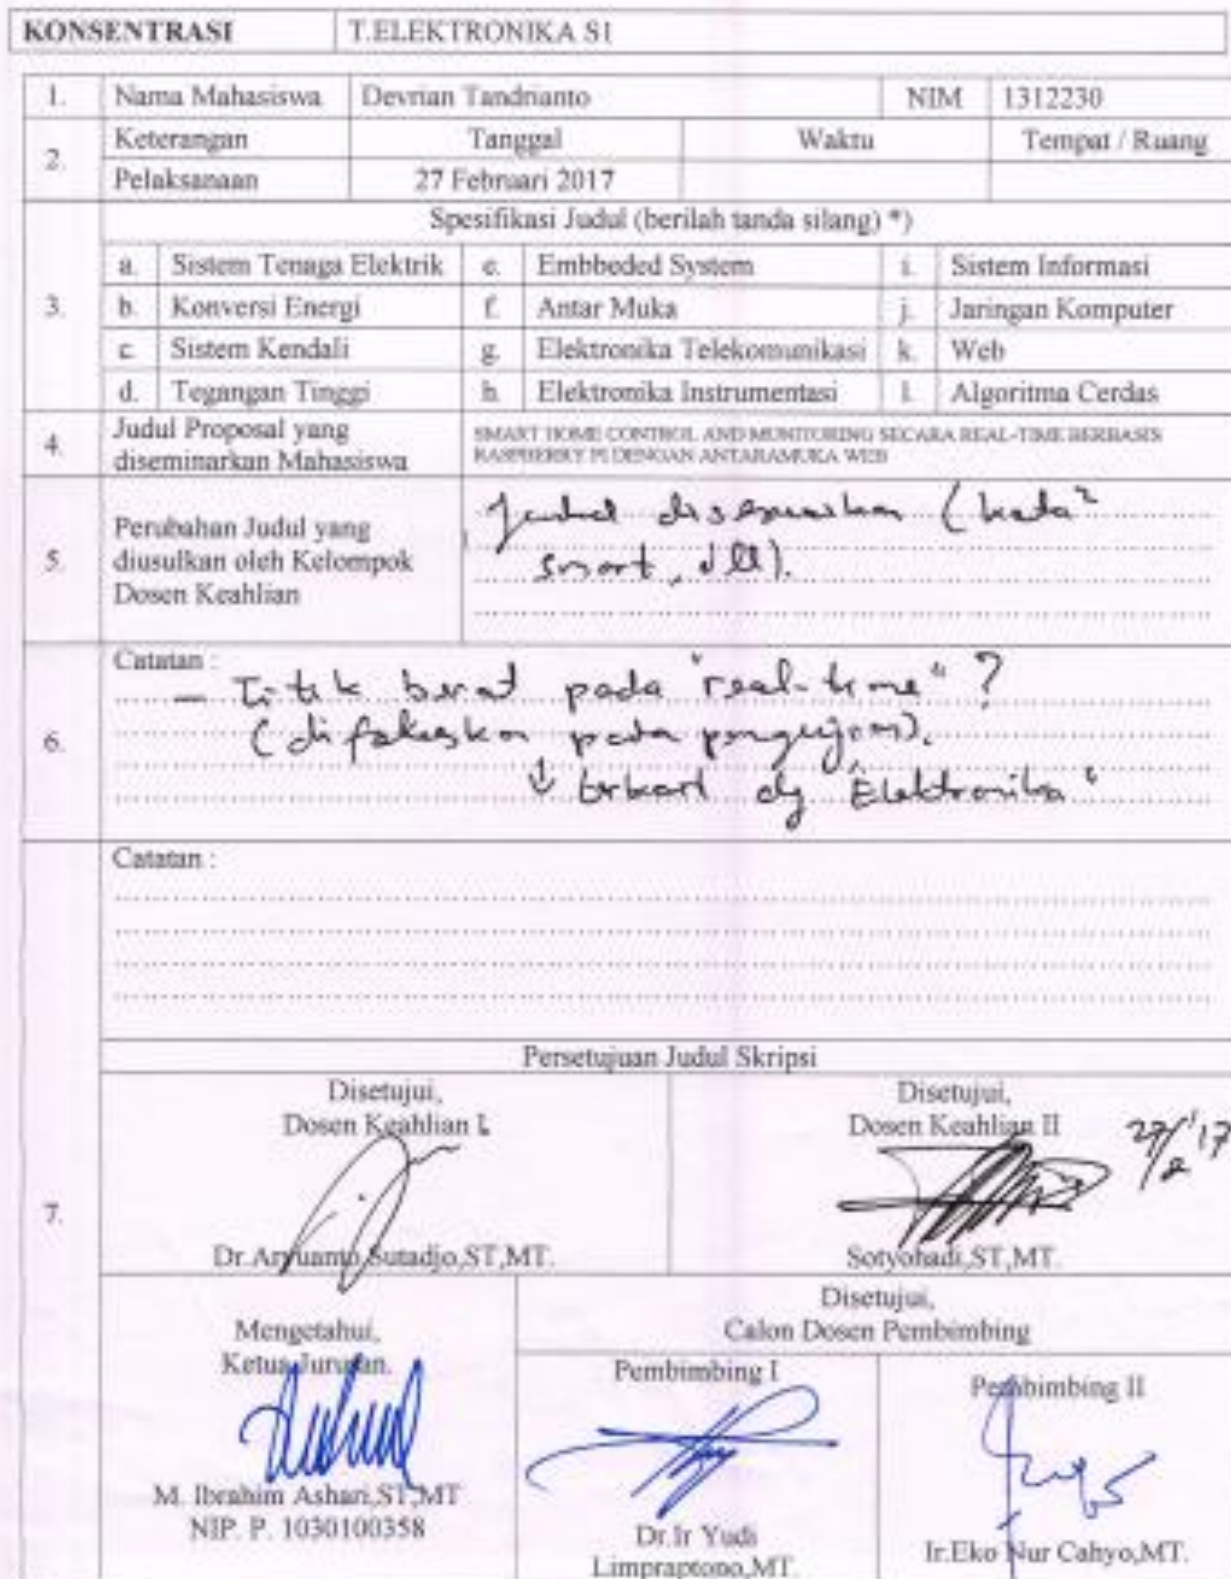 KONSENTRASI T.ELEKTRONIKA S1
1. Nama Mahasiswa Devrian Tandrianto NIM 1312230
2. Keterangan Tanggal Waktu Tempat / Ruang
Pelaksanaan 27 Februari 2017
3. Spesifikasi Judul (berilah tanda silang) *)
a. Sistem Tenaga Elektrik e. Embbeded System i. Sistem Informasi
b. Konversi Energi f. Antar Muka j. Jaringan Komputer
c. Sistem Kendali g. Elektronika Telekomunikasi k. Web
d. Tegangan Tinggi h. Elektronika Instrumentasi l. Algoritma Cerdas
4. Judul Proposal yang
diseminarkan Mahasiswa
SMART HOME CONTROL AND MONITORING SECARA REAL-TIME BERBASIS
RASPBERRY PI DENGAN ANTARAMUKA WEB
5. Perubahan Judul yang
diusulkan oleh Kelompok
Dosen Keahlian
Judul disesuaikan (kata²
smart, dll).
6. Catatan :
– Titik berat pada "real-time" ?
(difokuskan pada pengujian).
↓ terkait dg Elektronika"
Catatan :
7. Persetujuan Judul Skripsi
Disetujui,
Dosen Keahlian I
Dr.Aryuanto Sutadjo,ST,MT.
Disetujui,
Dosen Keahlian II
27/2 '17
Sotyohadi,ST,MT.
Mengetahui,
Ketua Jurusan.
M. Ibrahim Ashari,ST,MT
NIP. P. 1030100358
Disetujui,
Calon Dosen Pembimbing
Pembimbing I
Dr.Ir Yudi
Limpraptono,MT.
Pembimbing II
Ir.Eko Nur Cahyo,MT.